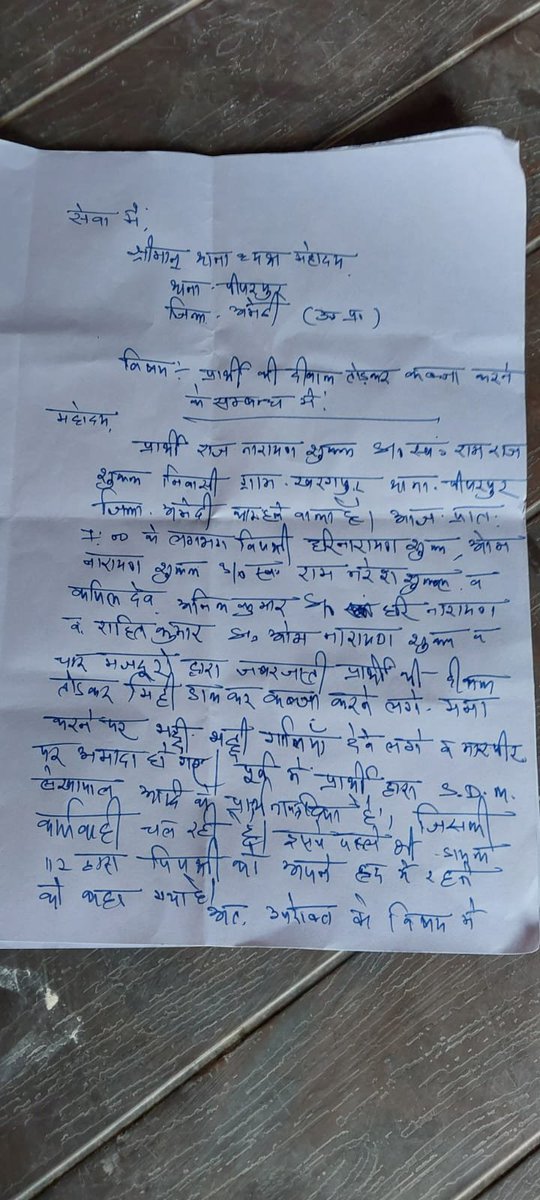 सेवा में,
श्रीमान् थानाध्यक्ष महोदय
थाना- पीपरपुर
जिला- अमेठी (उ० प्र०)
विषय:- प्रार्थी की दीवाल तोड़कर कब्जा करने
के सम्बन्ध में।
महोदय,
प्रार्थी राज नारायण शुक्ल S/o स्व० राम राज
शुक्ल निवासी ग्राम- थाना- पीपरपुर
जिला- अमेठी का रहने वाला है। आज प्रातः
7:00 के लगभग विपक्षी हरिनारायण शुक्ल, ओम
नारायण शुक्ल S/o स्व० राम नरेश शुक्ल व
कपिल देव, अनिल कुमार S/o हरि नारायण
व रोहित कुमार S/o ओम नारायण शुक्ल व
चार मजदूरों द्वारा जबरजस्ती प्रार्थी की दीवाल
तोडकर मिट्टी डालकर कब्जा करने लगे- मना
करने पर भद्दी भद्दी गालियाँ देने लगे व मारपीट
पर अमादा हो गए। पूर्व में प्रार्थी द्वारा S.D.M.
लेखापाल आदि को दिया है, जिसकी
कार्यवाही चल रही है। इससे पहले भी
112 द्वारा विपक्षी को अपने हद में रहने
को कहा गया है।
अतः उपरोक्त के विषय में